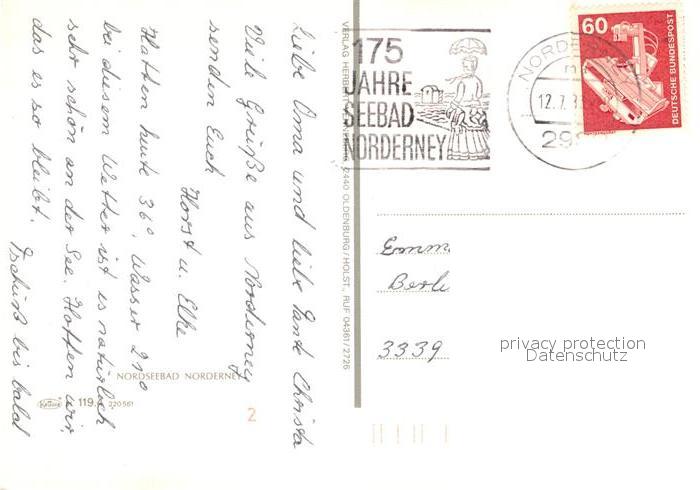 Liebe Oma und liebe Tante Christa
Viele Grüße aus Norderney
senden Euch
Horst u. Elke
Hatten heute 36°, Wasser 21°
bei diesem Wetter ist es natürlich
sehr schön an der See. Hoffen wir,
das es so bleibt.
Tschüß bis bald
NORDSEEBAD NORDERNEY
Krüger 119. 220 561
2
VERLAG HERB 2440 OLDENBURG/HOLST., RUF 04361/2726
175
JAHRE
SEEBAD
NORDERNEY
NORD
12.7.
298
60
DEUTSCHE BUNDESPOST
Emm
Berli
3339
privacy protection
Datenschutz